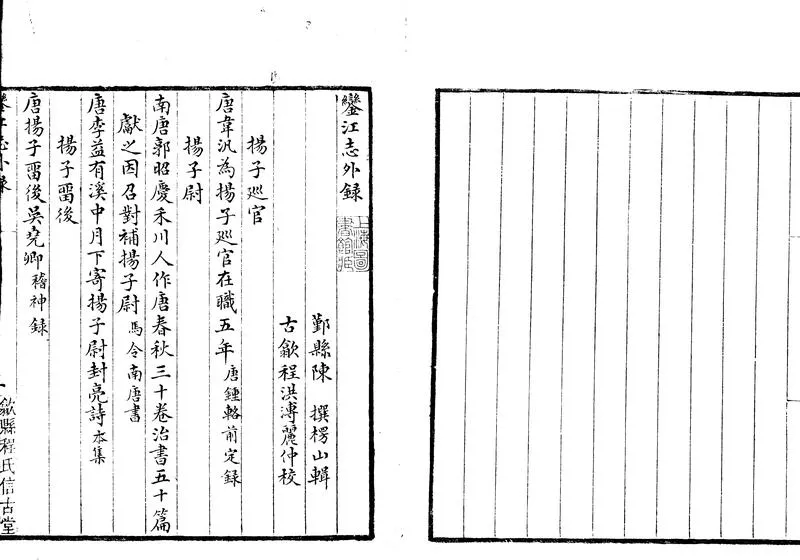 鑾江志外錄
上海圖書館藏
鄞縣陳 撰楞山輯
古歙程洪溥麗仲校
揚子巡官
唐韋汎為揚子巡官在職五年唐鍾輅前定录
揚子尉
南唐郭昭慶禾川人作唐春秋三十卷治書五十篇
獻之因召對補揚子尉馬令南唐書
唐李益有溪中月下寄揚子尉封亮詩本集
揚子畱後
唐揚子畱後吳堯卿稽神録
鑾江志外錄
一
歙縣程氏信古堂